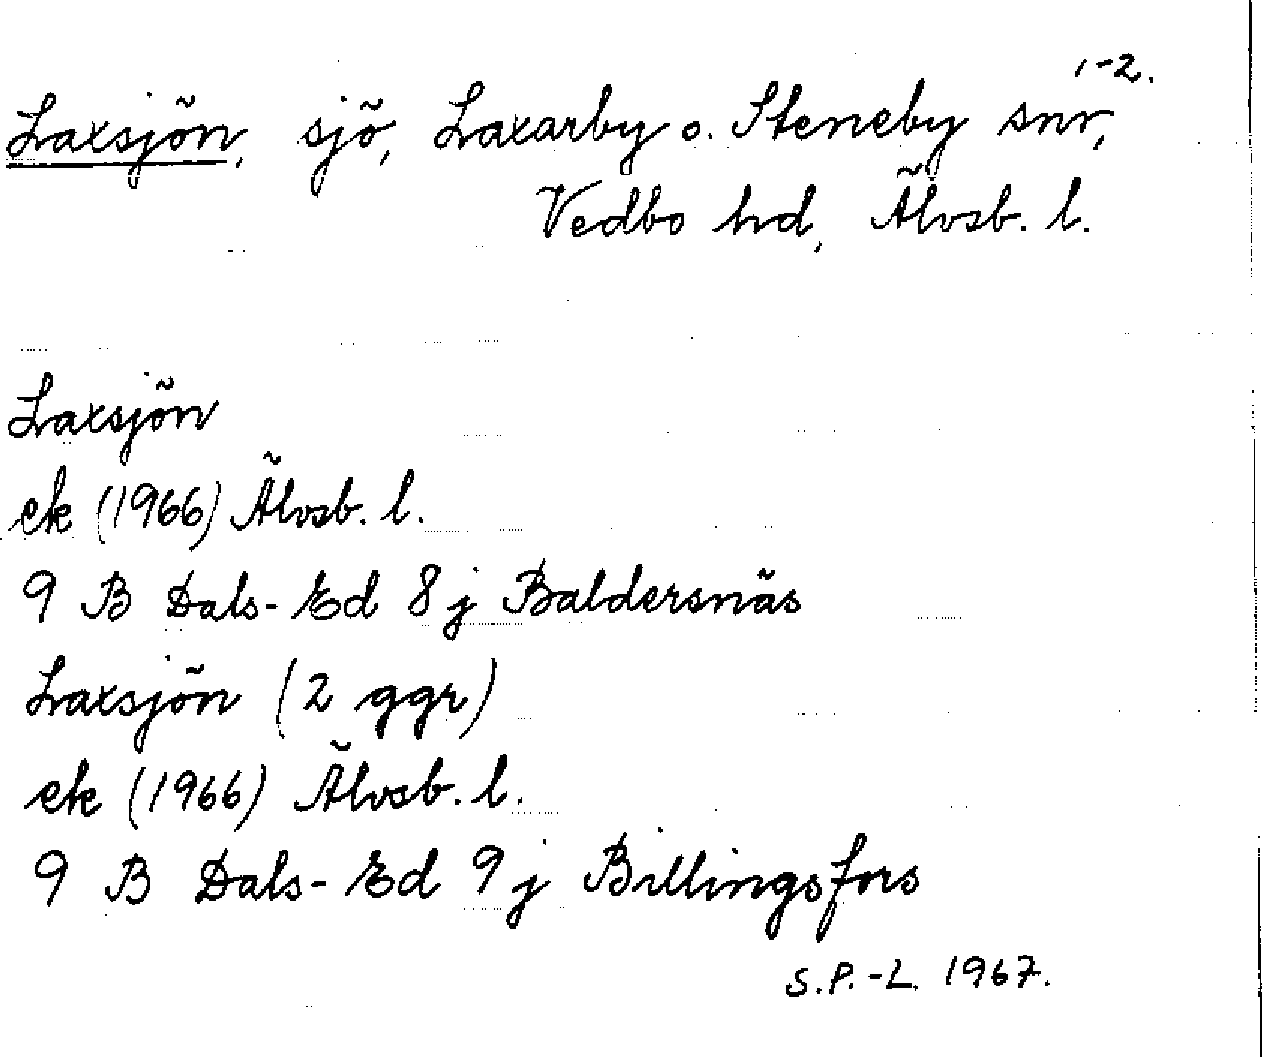 1-2.
Laxsjön, sjö, Laxarby o. Steneby snr,
Vedbo hd, Älvsb. l.
Laxsjön
ek (1966) Älvsb. l.
9 B Dals-Ed 8 j Baldersnäs
Laxsjön (2 ggr)
ek (1966) Älvsb. l.
9 B Dals-Ed 9 j Billingsfors
S.P.-L. 1967.